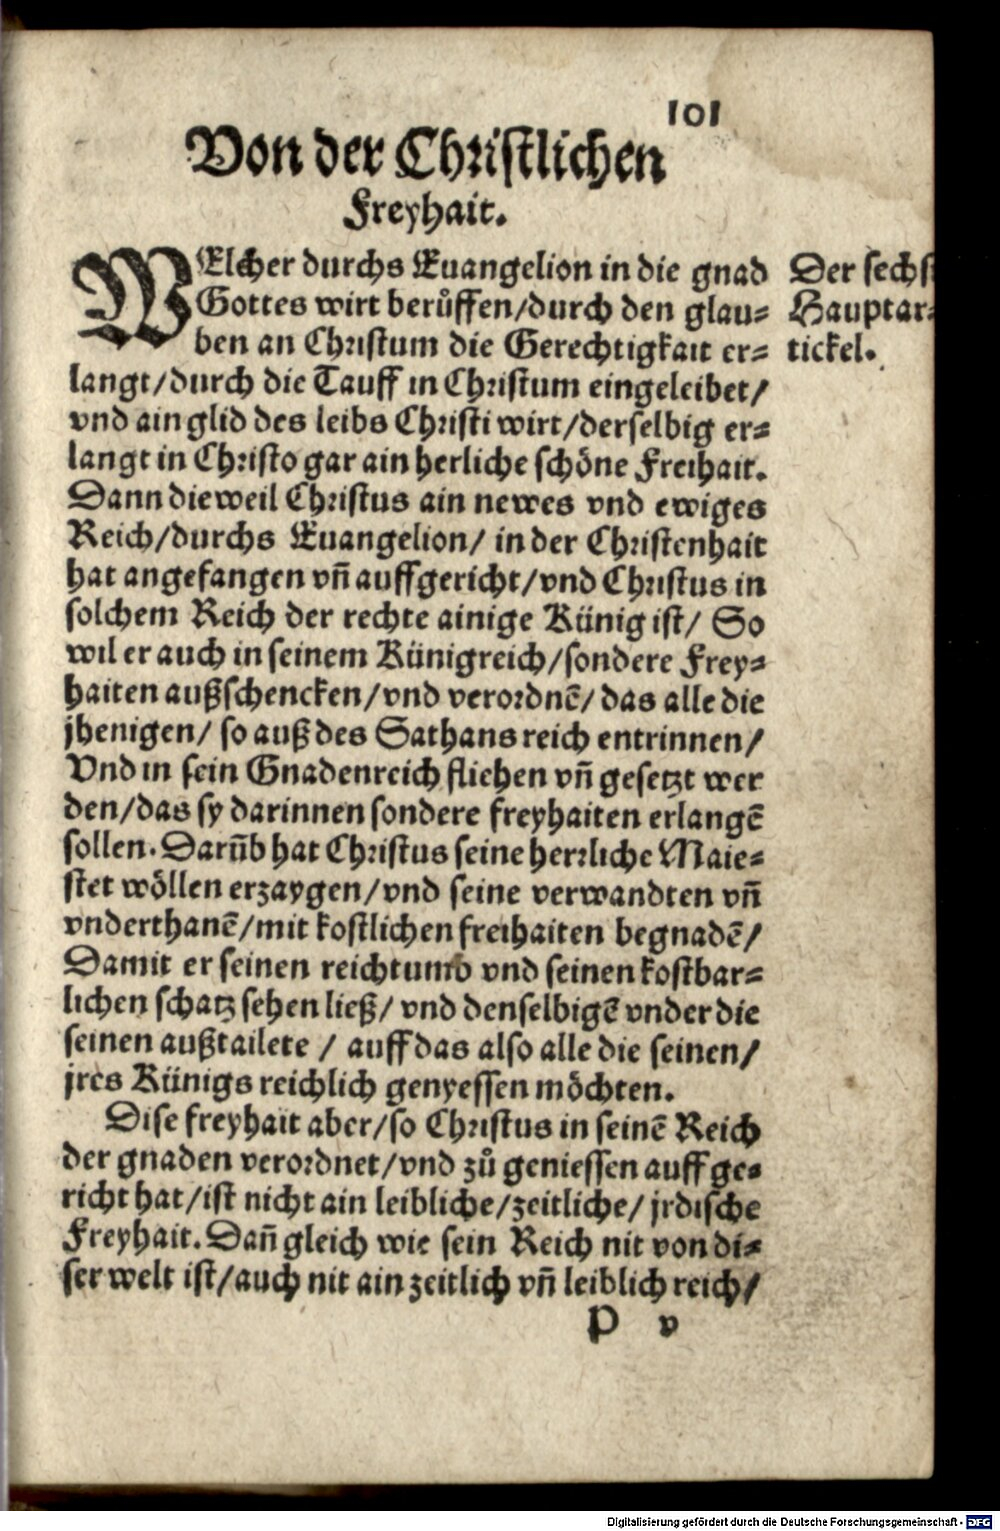 101
Von der Christlichen
Freyhait.
WElcher durchs Euangelion in die gnad
Gottes wirt berůffen/durch den glau⸗
ben an Christum die Gerechtigkait er⸗
langt/durch die Tauff in Christum eingeleibet/
vnd ain glid des leibs Christi wirt/derselbig er⸗
langt in Christo gar ain herliche schöne Freihait.
Dann dieweil Christus ain newes vnd ewiges
Reich/durchs Euangelion/ in der Christenhait
hat angefangen vn̄ auffgericht/vnd Christus in
solchem Reich der rechte ainige Künig ist/ So
wil er auch in seinem Künigreich/sondere Frey⸗
haiten außschencken/vnd verordnē/ das alle die
jhenigen/ so auß des Sathans reich entrinnen/
Vnd in sein Gnadenreich fliehen vn̄ gesetzt wer
den/das sy darinnen sondere freyhaiten erlangē
sollen. Darūb hat Christus seine herrliche Maie⸗
stet wöllen erzaygen/vnd seine verwandten vn̄
vnderthanē/mit kostlichen freihaiten begnadē/
Damit er seinen reichtumb vnd seinen kostbar⸗
lichen schatz sehen ließ/ vnd denselbigē vnder die
seinen außtailete / auff das also alle die seinen/
jres Künigs reichlich genyessen möchten.
Dise freyhait aber/so Christus in seinē Reich
der gnaden verordnet/vnd zů geniessen auffge⸗
richt hat/ist nicht ain leibliche/zeitliche/ jrdische
Freyhait. Dan̄ gleich wie sein Reich nit von di⸗
ser welt ist/auch nit ain zeitlich vn̄ leiblich reich/
P v
Der sechst
Hauptar⸗
tickel.
Digitalisierung gefördert durch die Deutsche Forschungsgemeinschaft - DFG